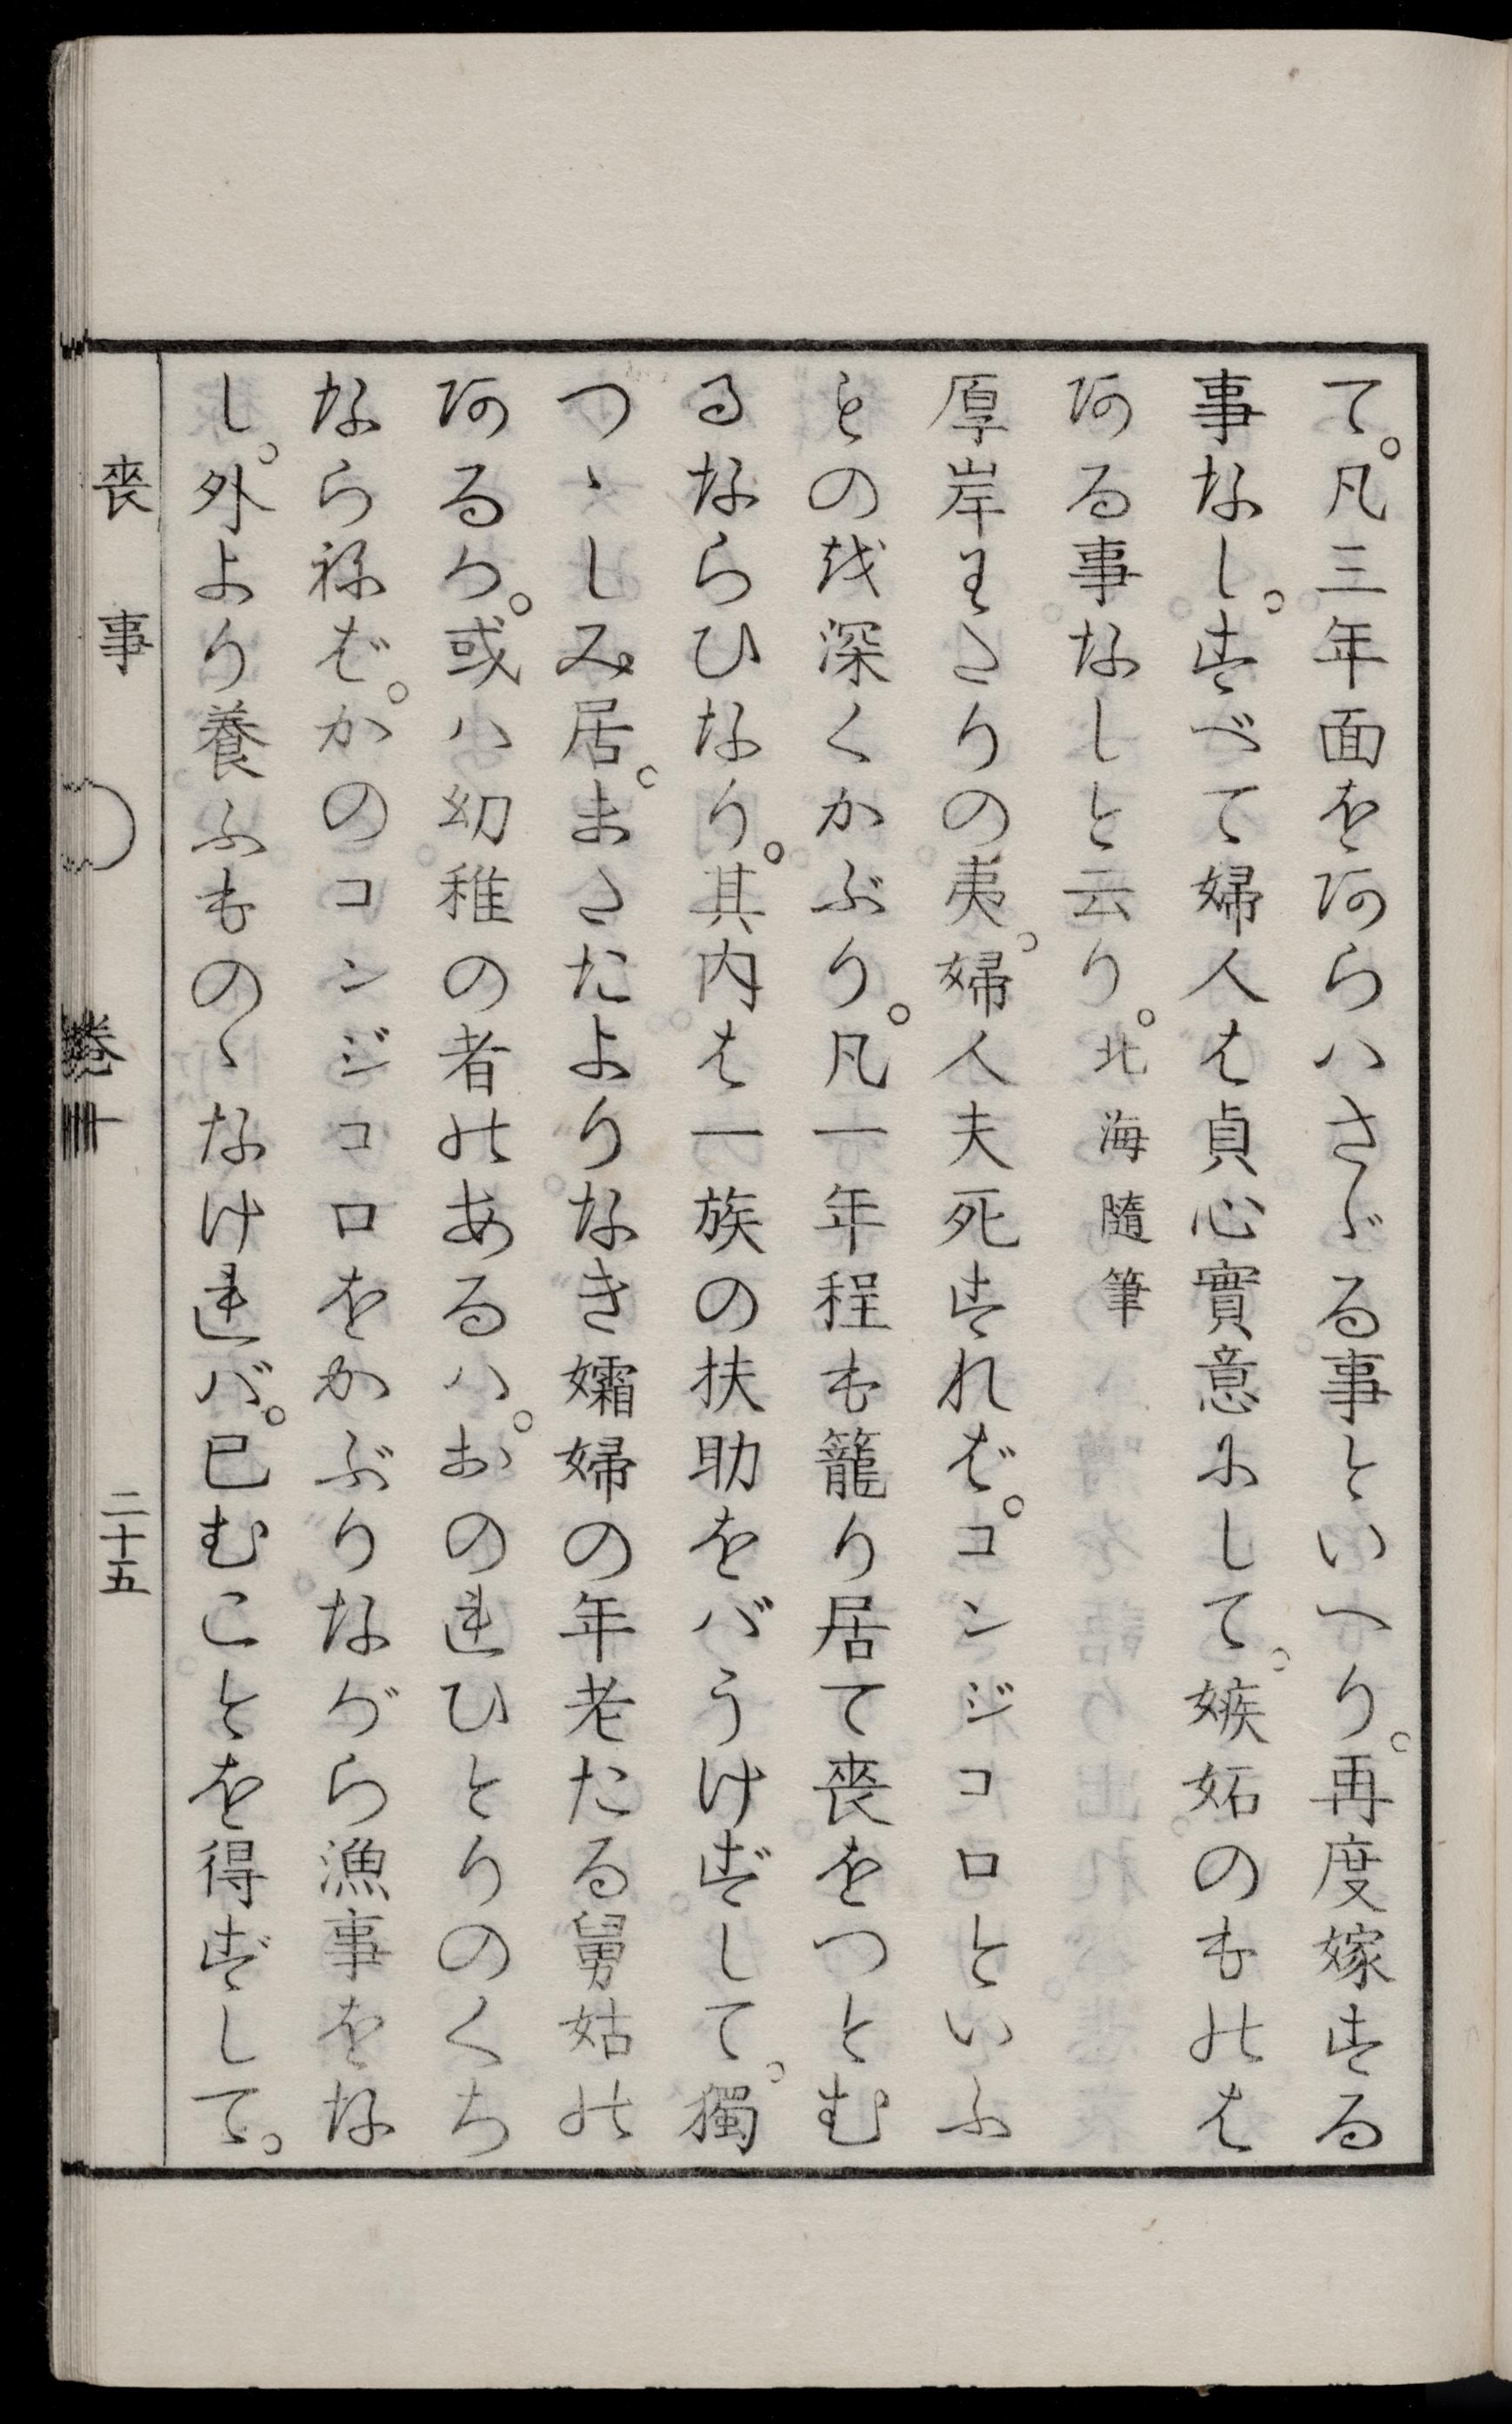 て。凡三年面をあらハさゞる事といへり。再度嫁する
事なし。すべて婦人は貞心實意にして。嫉妬のものは
ある事なしと云り。北海隨筆
厚岸わたりの夷。婦人夫死すれば。コンジコロといふ
ものを深くかぶり。凡一年程も籠り居て喪をつとむ
るならひなり。其内は一族の扶助をバうけずして。獨
つゝしみ居。まさたよりなき孀婦の年老たる舅姑の
あるか。或ハ幼稚の者のあるハ。おのれひとりのくち
ならねば。かのコンジコロをかぶりながら漁事をな
し。外より養ふものゝなけれバ。已むことを得ずして。
喪事 卷十 二十五